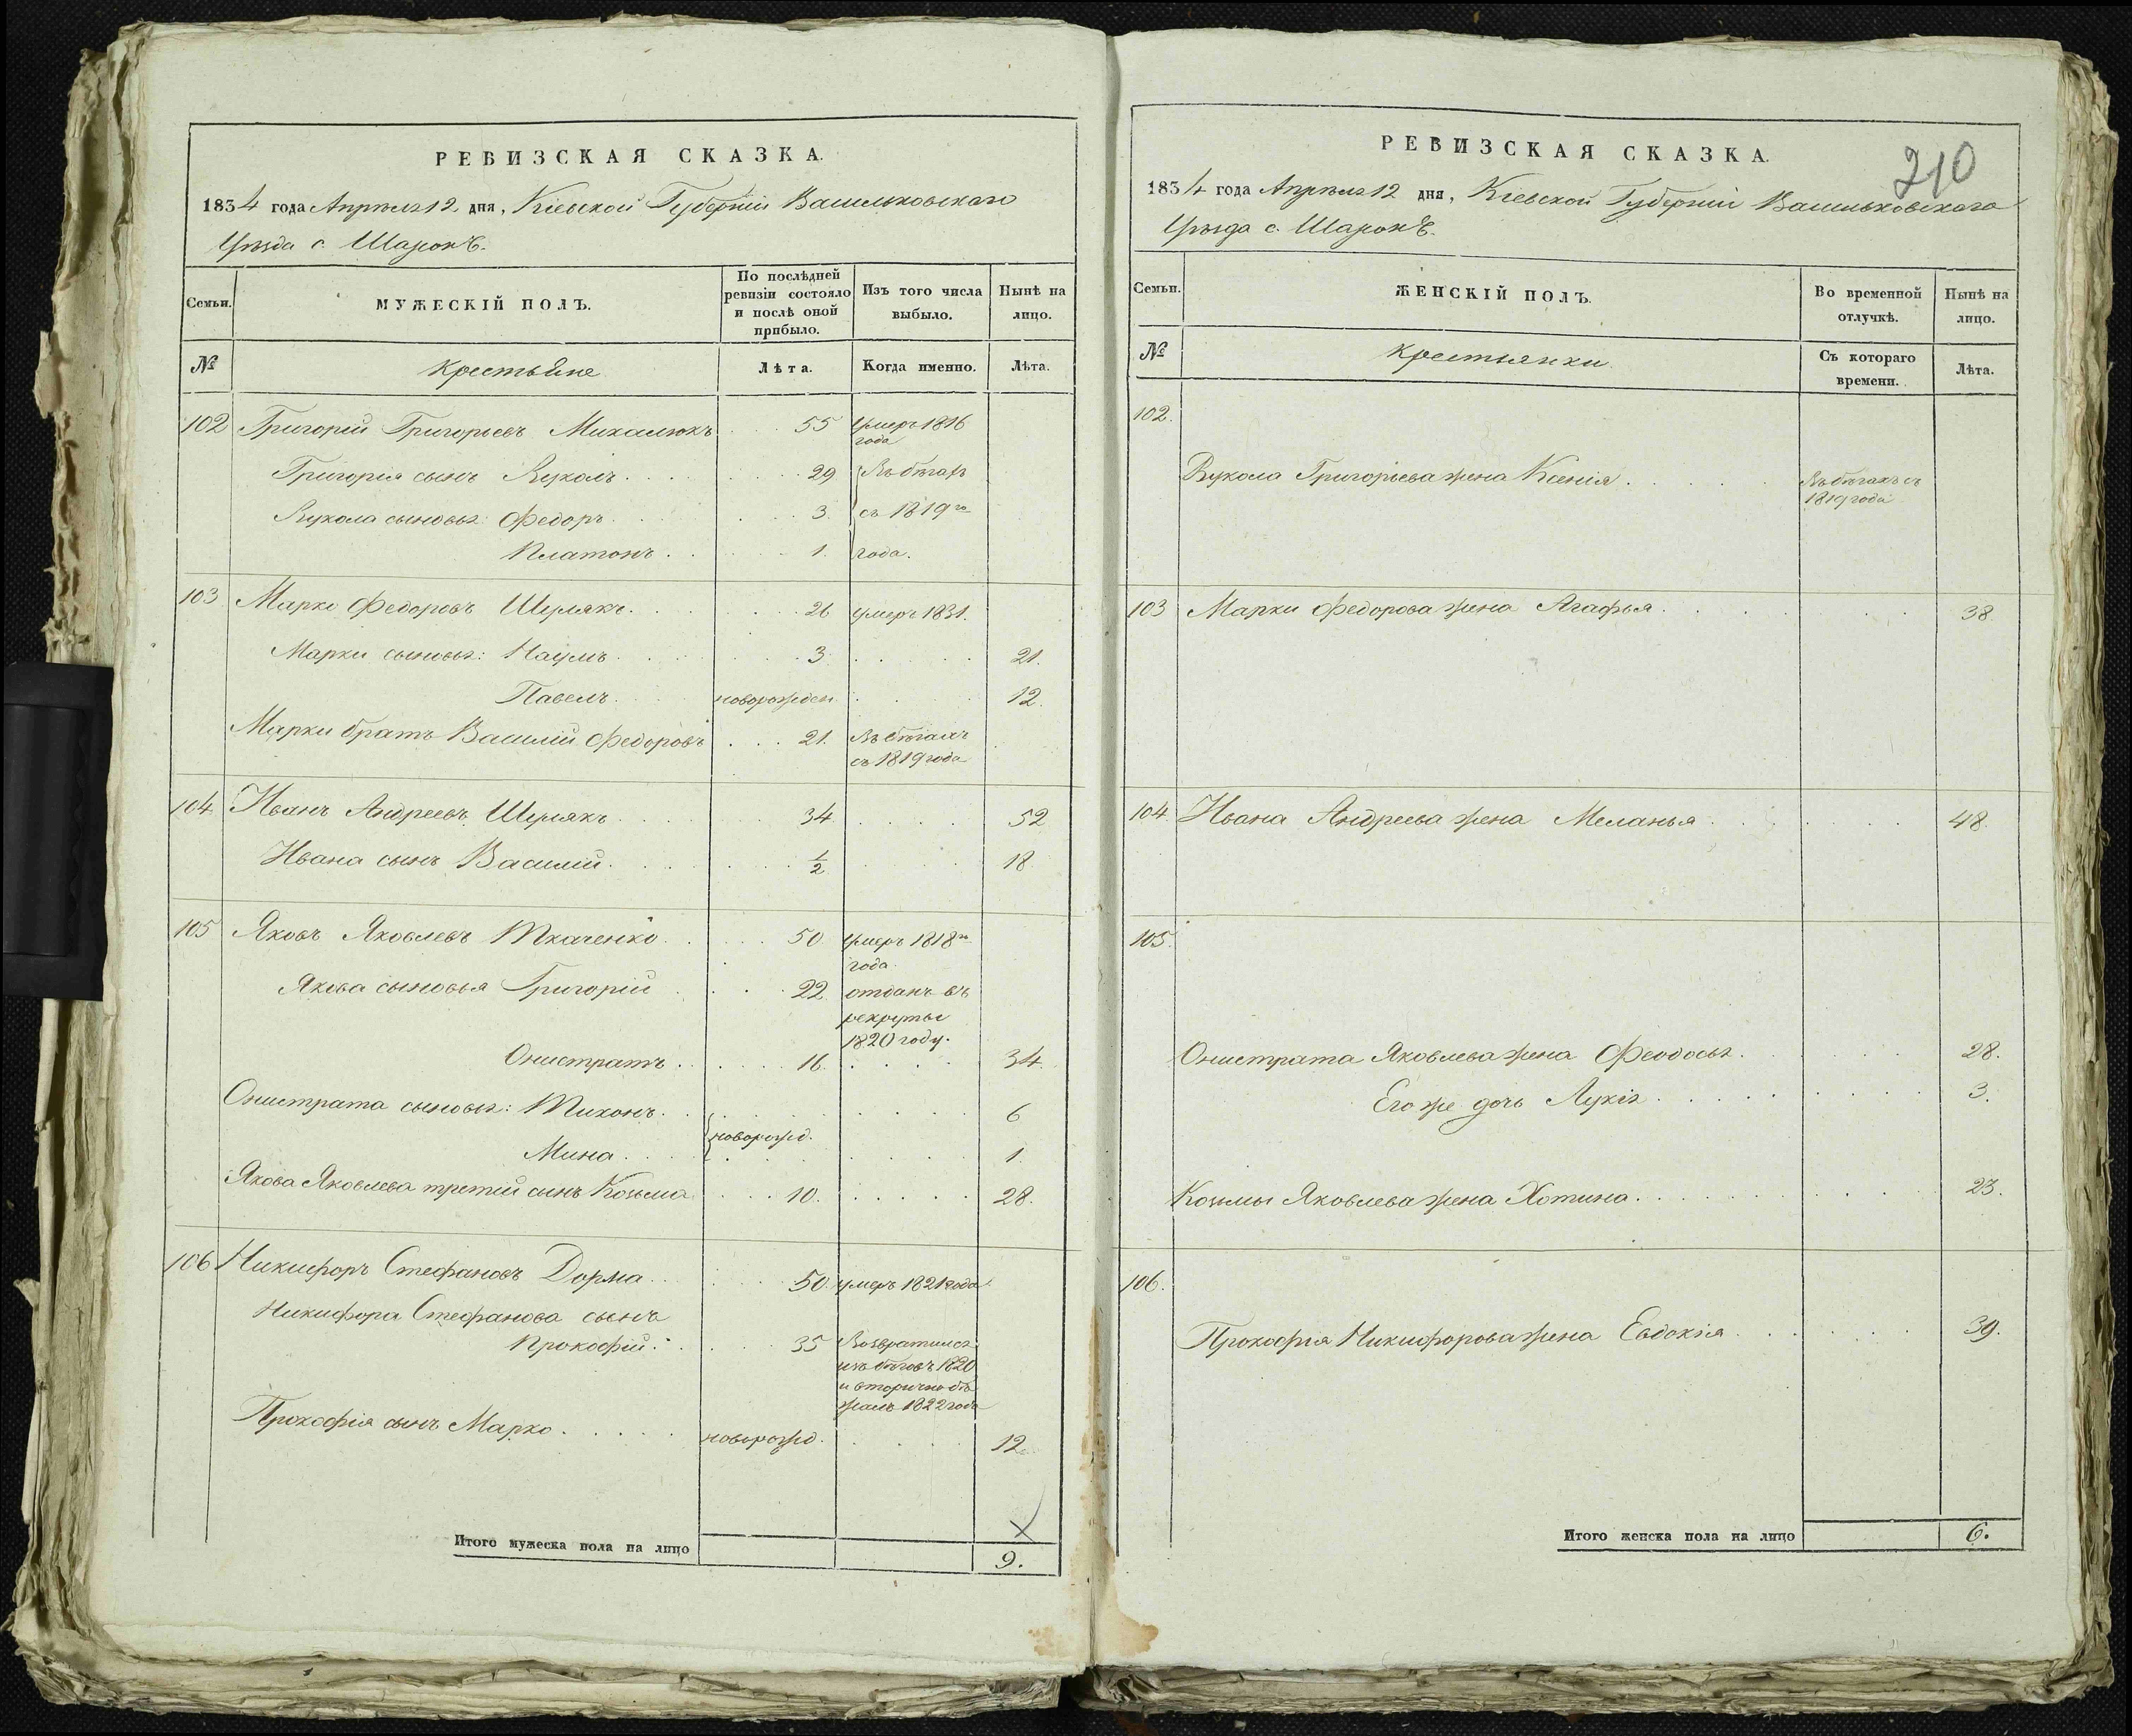 РЕВИЗСКАЯ СКАЗКА.
1834 года Апрѣля 12 дня, Кіевской Губерніи Васильковскаго
Уѣзда с.
Семьи.
МУЖЕСКІЙ ПОЛЪ.
По послѣдней ревизіи состояло и послѣ оной прибыло.
Изъ того числа выбыло.
Нынѣ на лицо.
№
Крестьяне
Лѣта.
Когда именно.
Лѣта.
102 Григорій Григорьевъ Михалюкъ 55 умеръ 1816
года
Григорія сынъ Вуколъ 29 Въ бѣгахъ
Вукола сыновья Федоръ 3 съ 1819го
Платонъ 1. года.
103 Марко Федоровъ Шулякъ 26 умеръ 1831.
Марки сыновья: Наумъ 3 21.
Павелъ новорожден 12.
Марки братъ Василій Федоровъ 21. Въ бѣгахъ
съ 1819 года
104 Иванъ Андреевъ Шулякъ 34 52
Ивана сынъ Василій 1/2 18
105 Яковъ Яковлевъ Ткаченко 50 умеръ 1818го
года.
Якова сыновья Григорій 22 отданъ въ
рекруты
1820 году.
Онистратъ 16. 34.
Онистрата сыновья: Тихонъ 6
новорожд.
Мина 1.
Якова Яковлева третій сынъ Козьма 10. 28.
106 Никифоръ Стефановъ Дорма 50. умеръ 1821 года
Никифора Стефанова сынъ
Прокофій 35 Возвратился
изъ бѣговъ 1820
и вторично бѣ
жалъ 1822 года
Прокофія сынъ Марко новорожд. 12
Итого мужеска пола на лицо 9.
210
РЕВИЗСКАЯ СКАЗКА.
1834 года Апрѣля 12 дня, Кіевской Губерніи Васильковскаго
Уѣзда с.
Семьи.
ЖЕНСКІЙ ПОЛЪ.
Во временной отлучкѣ.
Нынѣ на лицо.
№
Крестьянки
Съ котораго времени.
Лѣта.
102.
Вукола Григорьева жена Ксенія Въ бѣгахъ съ
1819 года
103 Марки Федорова жена Агафья 38
104. Ивана Андреева жена Меланья 48.
105.
Онистрата Яковлева жена Феодосья 28.
Его же дочь Лукія 3.
Козьмы Яковлева жена Хотина 23.
106.
Прокофія Никифорова жена Евдокія 39.
Итого женска пола на лицо 6.